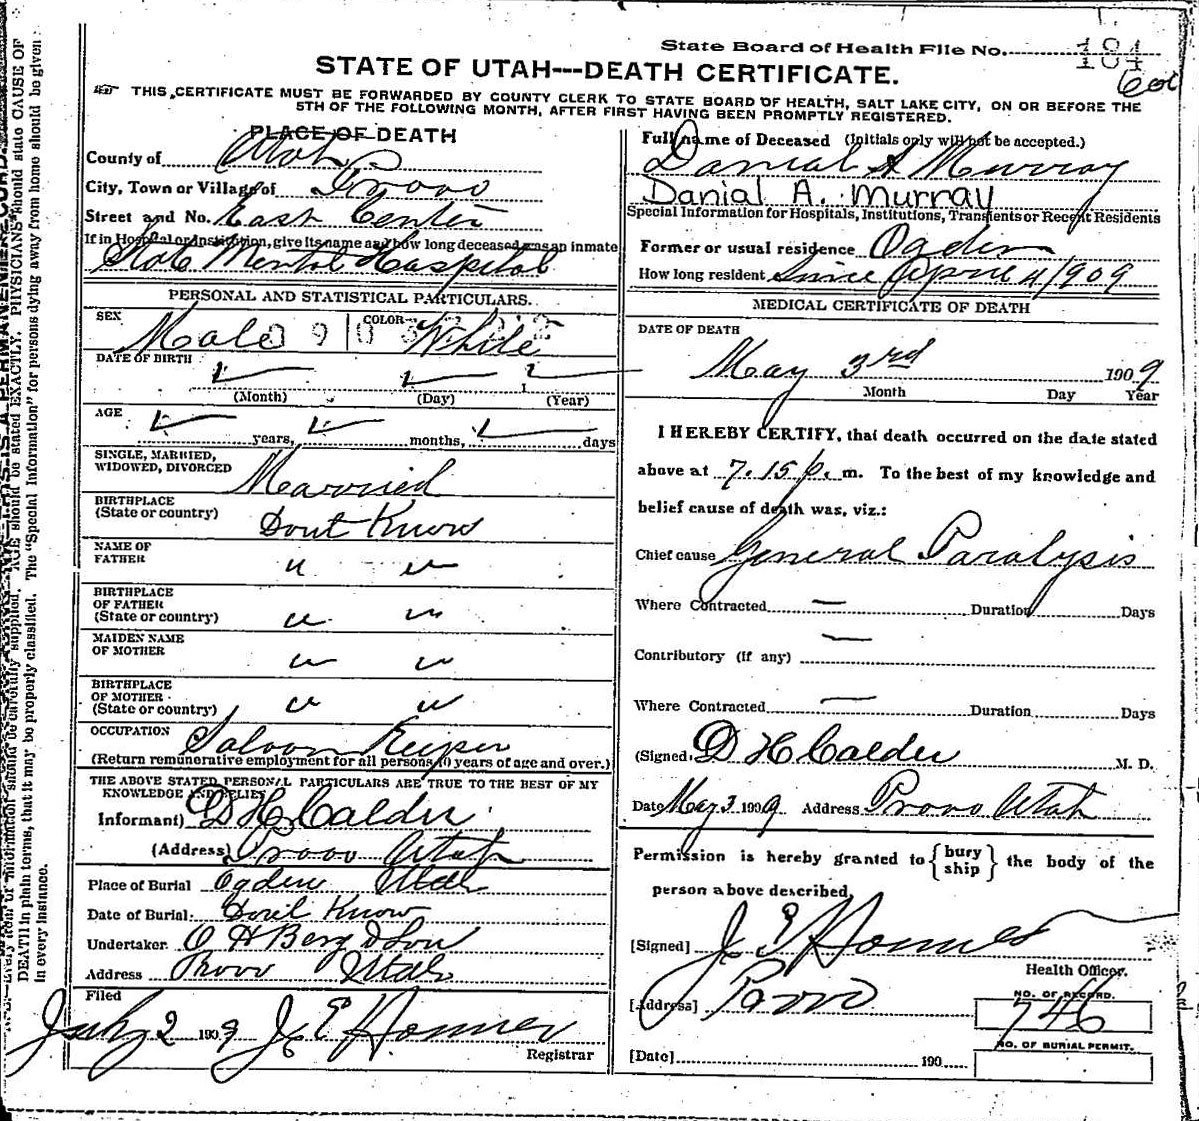 State Board of Health File No. 184
601
STATE OF UTAH---DEATH CERTIFICATE.
THIS CERTIFICATE MUST BE FORWARDED BY COUNTY CLERK TO STATE BOARD OF HEALTH, SALT LAKE CITY, ON OR BEFORE THE
5TH OF THE FOLLOWING MONTH, AFTER FIRST HAVING BEEN PROMPTLY REGISTERED.
PLACE OF DEATH
County of Utah
City, Town or Village of Provo
Street and No. East Center
If in Hospital or Institution, give its name and how long deceased was an inmate
State Mental Hospital
PERSONAL AND STATISTICAL PARTICULARS.
SEX Male COLOR White
DATE OF BIRTH
(Month) (Day) (Year)
AGE
years, months, days
SINGLE, MARRIED,
WIDOWED, DIVORCED Married
BIRTHPLACE
(State or country) Dont Know
NAME OF
FATHER " "
BIRTHPLACE
OF FATHER
(State or country) " "
MAIDEN NAME
OF MOTHER " "
BIRTHPLACE
OF MOTHER
(State or country) " "
OCCUPATION Saloon Keeper
(Return remunerative employment for all persons 10 years of age and over.)
THE ABOVE STATED PERSONAL PARTICULARS ARE TRUE TO THE BEST OF MY
KNOWLEDGE AND BELIEF
Informant) D H Calder
(Address) Provo Utah
Place of Burial Ogden Utah
Date of Burial. Dont Know
Undertaker O H Berg & Son
Address Provo Utah
Filed
July 2 1909 J E Homer
Registrar
Full name of Deceased (Initials only will not be accepted.)
Danial A Murray
Danial A. Murray
Special Information for Hospitals, Institutions, Transients or Recent Residents
Former or usual residence Ogden
How long resident Since April 4/1909
MEDICAL CERTIFICATE OF DEATH
DATE OF DEATH
May 3rd 1909
Month Day Year
I HEREBY CERTIFY, that death occurred on the date stated
above at 7.15 p. m. To the best of my knowledge and
belief cause of death was, viz.:
Chief cause General Paralysis
Where Contracted — Duration Days
Contributory (if any) —
Where Contracted — Duration Days
(Signed) D H Calder M. D.
Date May 3 1909 Address Provo Utah
Permission is hereby granted to { bury ship } the body of the
person above described,
[Signed] J E Homer
Health Officer.
[Address] Provo
NO. OF RECORD.
746
NO. OF BURIAL PERMIT.
[Date] 190
Every item of information should be carefully supplied. AGE should be stated EXACTLY. PHYSICIANS should state CAUSE OF
DEATH in plain terms, that it may be properly classified. The "Special Information" for persons dying away from home should be given
in every instance.